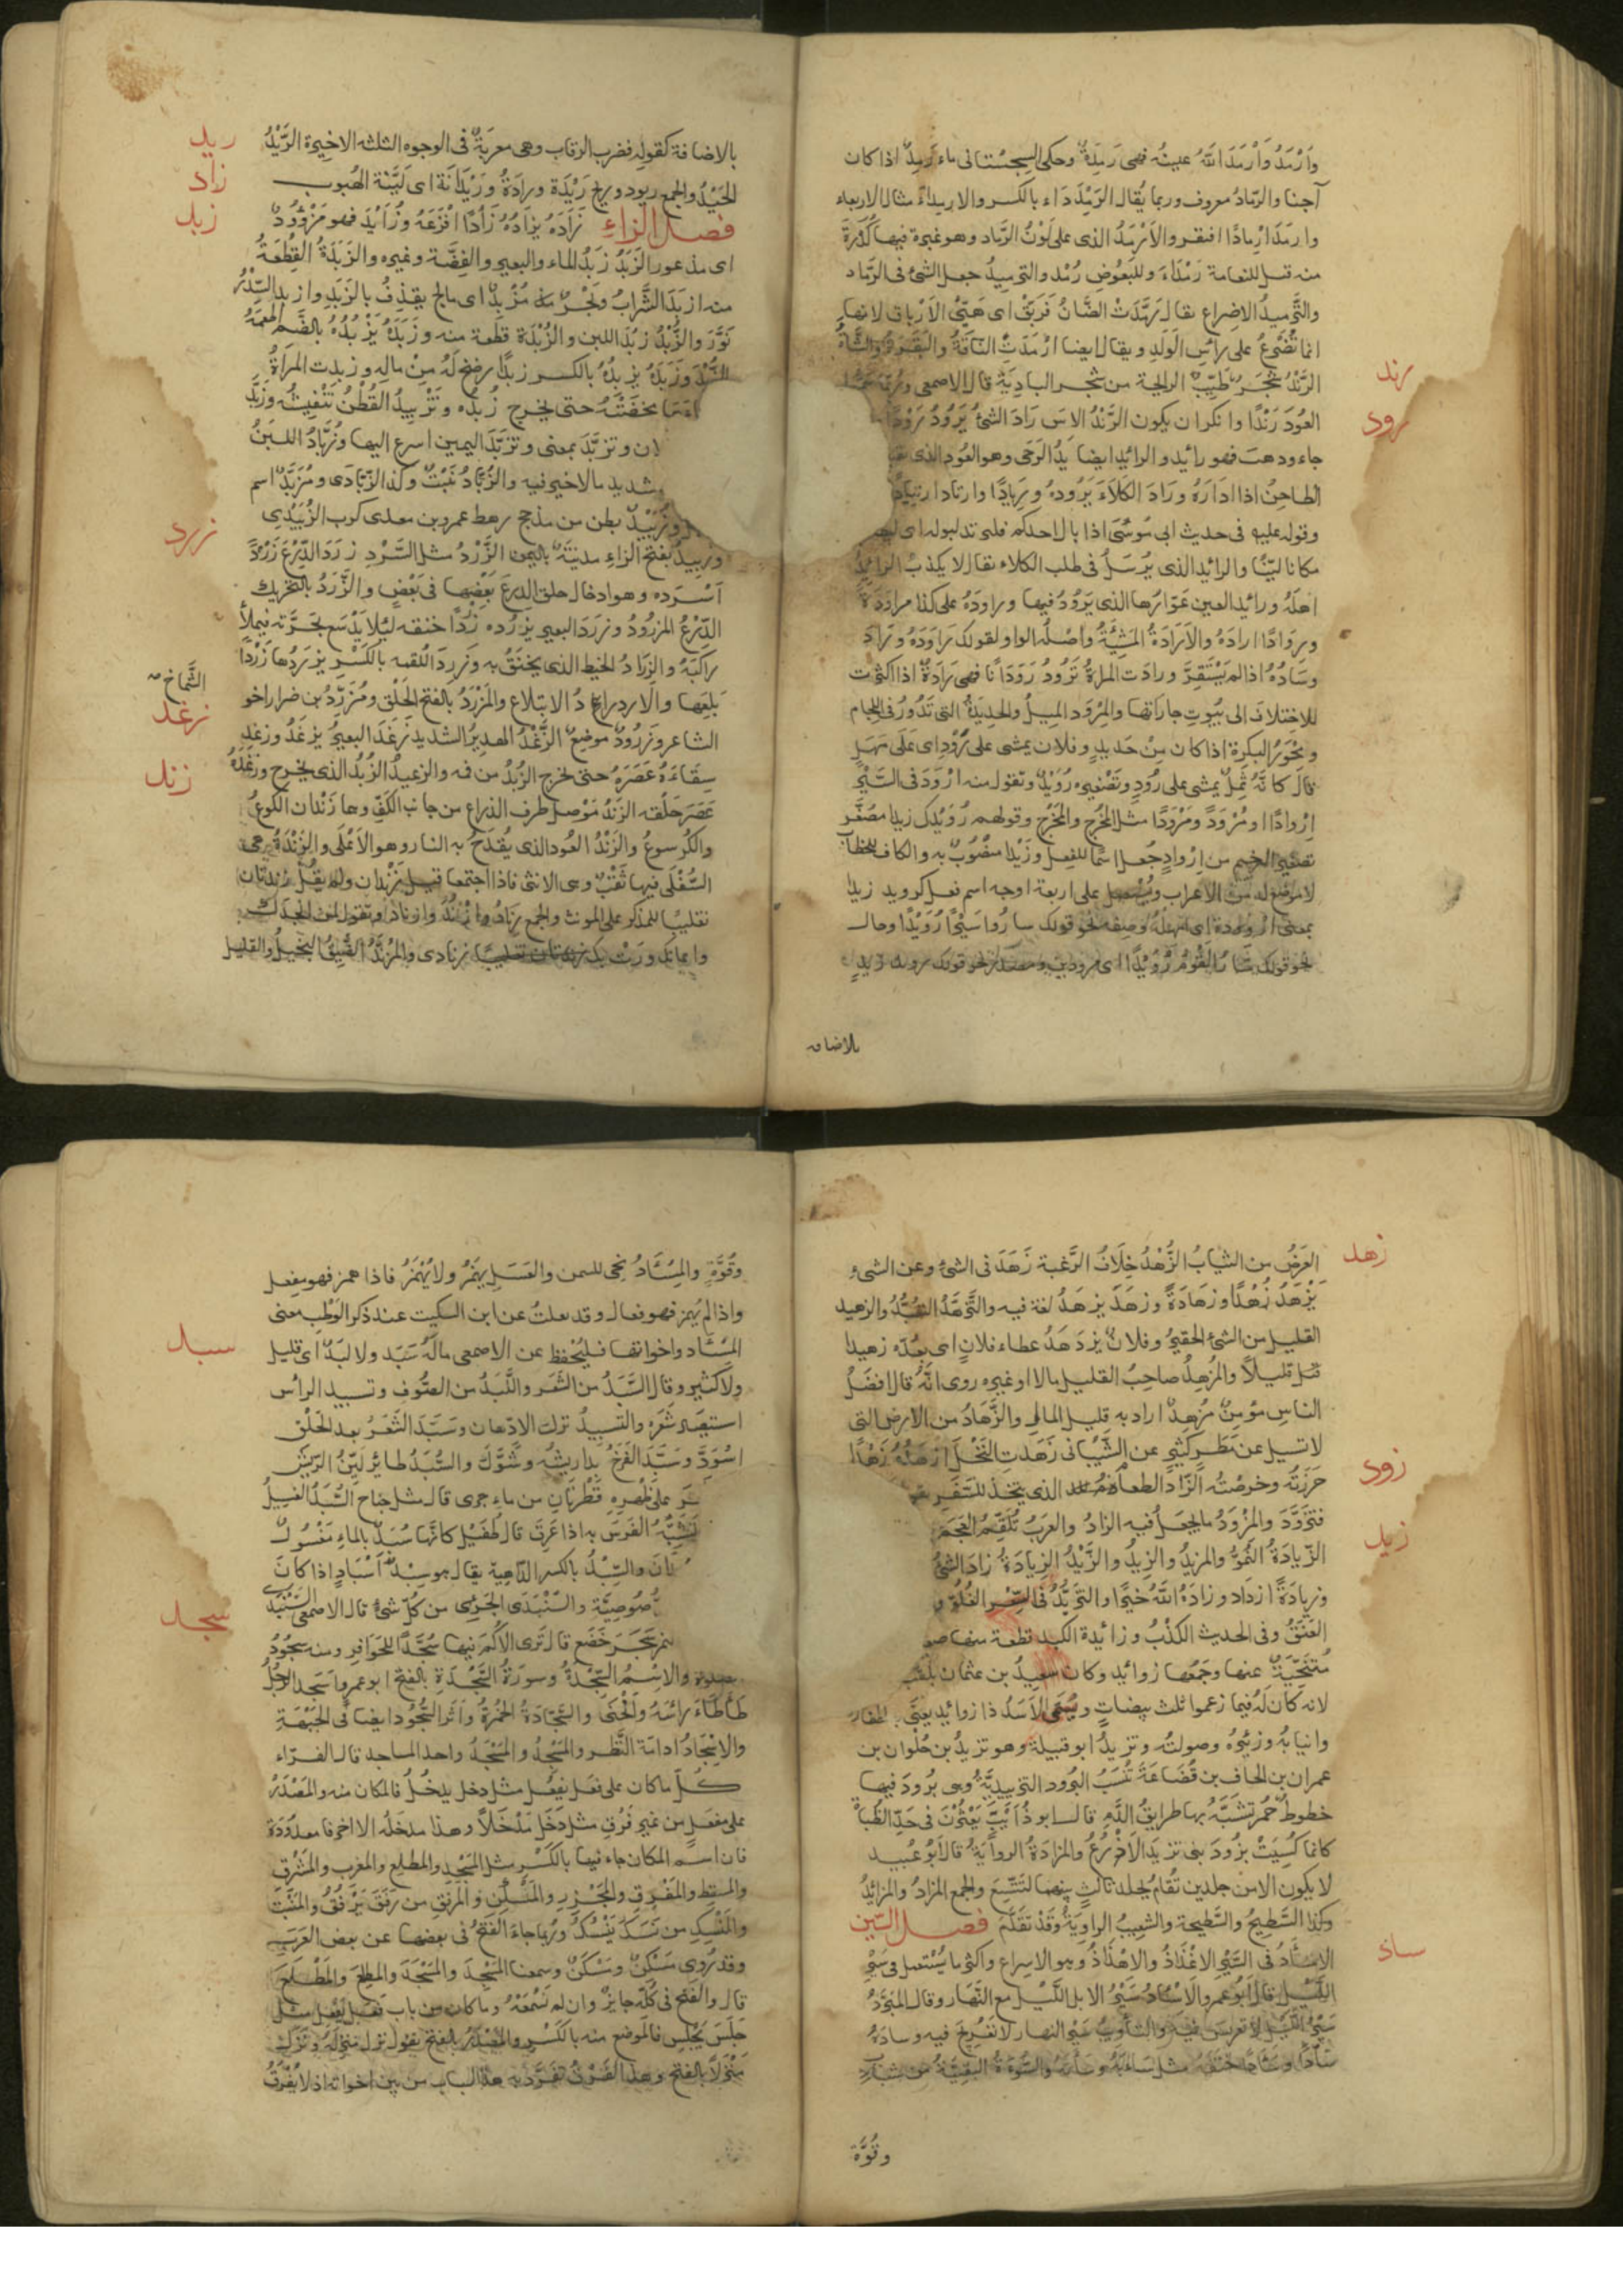 وَأَرْمَدُ وَأَرْمَدَ اللّٰهُ عينَه فهى رَمِدَةٌ وحكى السجستانى ماء رَمِدٌ اذا كان
آجنا والرَّمادُ معروف وربما يُقال الرِّمْدِدَاء بالكسر والارمداءُ مثال الاربعاء
وارمَدَ ارْمادًا افتقر والاَرْمَدُ الذى على لَوْنُ الرَّماد وهو غبرة فيها كُدْرَةٌ
منه قيل للنعامة رَمْدَاءَ وللبَعُوضِ رُمْد والترميدُ جعل الشئ فى الرَّماد
والتَّرميدُ الاضراع يقال رَمَّدَتْ الضَّانُ فَرَبِّقْ اى هَيِّئْ الاَرْباق لانها
انما تُضْرِعُ على رأسِ الوَلَدِ ويقال ايضا ارْمَدَتِ النّاقَةُ والبَقَرَةُ والشّاةُ
رند
الرَّنْدُ شَجَرٌ طَيِّبُ الرايحة من شجر البادِيَةِ قال الاصمعى وربّما سَمَّوا
رود
العُودَ رَنْدًا وانكر ان يكون الرَّنْدُ الاسَ رَادَ الشئُ يَرُودُ رَوْدًا
جاء وذهب فهو رائِد والرائِد ايضا يَدُ الرَحَى وهو العُود الذى
الطاحِنُ اذا ادَارَهُ ورَادَ الكَلاَءَ يَرُودهُ ورِيادًا وارتاد ارتيادًا
وقوله عليه فى حديث ابى مُوسَى اذا بال احدكم فليرتد لبوله اى
مكانا ليّنًا والرائِد الذى يُرسَلُ فى طلب الكلاء يقال لا يكذب الرائِدُ
اهلَهُ ورائِد العين عَوّارُها الذى يَرُودُ فيها وراودَهُ على كذا مراوَدَةً
ورِوادًا ارادَهُ والاَرادَةُ المَشِيَّةُ واصْلُه الواو لقولك رَاوَدَهُ ورَادَ
وسَادُهُ اذا لم يَسْتَقِرَّ ورادَت المرأةُ تَرُودُ رَوَدَانًا فهى رَادَةٌ اذا اكثرت
للاختلاف الى بُيوتِ جاراتها والمِرْوَد المِيلُ والحديدَةُ التى تَدُورُ فى اللجام
ومِحْوَرُ البكرة اذا كان مِنْ حَديدٍ وفلان يمشى على رُوْدٍ اى عَلَى مَهَلٍ
قال كانَّهُ ثَمِلٌ يمشى على رُودٍ وتَصْغيره رُوَيْدٌ وتقول منه ارْوَدَ فى السَّيْرِ
اِرْوادًا ومُرْوَدًا ومَرْوَدًا مثل المُخْرَجِ والمَخْرَجِ وقولهم رُوَيْدَكَ زيدا مصَغَّر
تصغير الترخيم من اِرْوادٍ جُعل اسمًا للفعل وزَيْدًا منصُوبٌ به والكاف للخطاب
لا موضع له من الاعراب على اربعة اوجه اسم فعل كرويد زيدا
بمعنى اى امهِلْهُ وصِفه نحو قولك سارُوا سَيْرًا رُوَيْدًا وحال
نحو قولك سَارَ القَوْمُ رُوَيْدًا ومصدر نحو قولك رويد زيدٍ
بالاضافه
ريد
بالاضافة كقوله فضرب الرقاب وهى معربَةٌ فى الوجوه الثلثه الاخيرة الرَّيْدُ
زاد
الحَيْدُ والجمع ريود وريح رَيْدَة ورادَةٌ ورَيْدَانَة اى لَيِّنَة الهُبوب
زبد
فصل الزاءِ زَأَدَهُ يَزْأَدُهُ زَأْدًا افْزَعَهُ وزُئِدَ فهو مَزْؤُودٌ
اى مذعور الزَبَدُ زبَدُ الماء والبعير والفِضَّة وغيره والزَبَدَةُ القِطْعَةُ
منه ازبَدَ الشَّرابُ وبَحْرٌ مُزْبِدٌ اى مالج يقذِفُ بالزَبَدِ وازبد السِّدْرُ
نَوَّرَ والزُّبْدُ زبَدُ اللبن والزُبْدَة قطعة منه وزَبَدَهُ يَزْبُدُهُ بالضم اطعَمَهُ
الزُّبْدَ وزَبَدَهُ يَزْبِدُهُ بالكسر زبدًا رضخ لَهُ مِنْ مالِهِ وزبدت المرأةُ
مخضَتْهُ حتى يخرج زُبْدُه وتَزْبِيدُ القُطْنِ تَنْفِيشُه وزَبَّدَ
لان وتزبَّدَ بمعنى وتزبَّدَ اليمين اسرع اليها وزُبَّادُ اللبَنُ
وتشديد ما لا خير فيه والزُّبَّادُ نَبْتٌ وكذا الزُّبّادَى ومُزَبِّدٌ اسم
وزُبَيْدٌ بطن من مذحج رهط عمرو بن معدى كرب الزُبَيْدِى
زرد
وزَبِيدُ بفتح الزاء مدينَةٌ باليمن الزَّرْدُ مثل السَّرْدِ زرَدَ الدِّرْعَ زَرْدًا
اسْرَده وهو ادخال حلق الدِرعِ بَعْضِها فى بَعْضٍ والزَّرَدُ بالتحريك
الدِّرْعُ المزرُودُ وزرَدَ البعير يزرُده زردًا خنقه لِئلا يَدْسَع بجَرَّته فيملأُ
راكبَهُ والزِرَادُ الخيط الذى يُخْنَقُ به وزرِدَ اللقمه بالكَسْرِ يزرَدُها زَرْدًا
الشَّماخ صح
بَلِعَها والازدرادُ الابتلاع والمَزْرَدُ بالفتح الحَلْق ومُزَرِّدُ بن ضرار اخو
زغد
الشاعر وزَرُودٌ موضِعٌ الزَّغْدُ الهديرُ الشديد زَغَدَ البعيرُ يزغَدُ وزغد
زند
سِقَاءَهُ عَصَرَهُ حتى يخرج الزُبْدُ من فمه والزغيدُ الزُبْدُ الذى يخرج وزغَدَهُ
عَصَرَ حَلْقَه الزَنْدُ مَوْصِل طرف الذراع من جانب الكفّ وهما زَنْدان الكُوعُ
والكُرسوعُ والزَنْدُ العُود الذى يُقْدَحُ به النار وهو الاَعْلَى والزَنْدَةُ هى
السُّفْلَى فيها ثَقْبٌ وهى الانثى فاذا اجتمعا قيل زَنْدان ولم يقُلْ زندتان
تغليبًا للمذكر على المونث والجمع زِنادٌ وازْنُدٌ وازناد وتقول لمن انجدك
واعانك ورَتْ بك زنادى والمُزَنَّدُ الضَّيِّقُ البخيلُ والقليل
زهد
العَرَضُ من الثيابُ الزُّهْدُ خِلَافُ الرَّغبة زَهَدَ فى الشئ وعن الشئِ
يَزْهَدُ زُهْدًا وزهَادَةً وزهَدَ يزهَدُ لغة فيه والتَّزَهُّدُ التعَبُّدُ والزهيد
القليل من الشئ الحقيرُ وفلانٌ يزدَهَدُ عطاء فلانٍ اى يعُدّه زهيدا
قليلاً والمُزْهِدُ صاحِبُ القليل مالا او غيره روى انّهُ قال افضَلُ
الناسِ مؤمِنٌ مُزهِدٌ اراد به قليل المال والزَّهَادُ من الارض التى
لا تسيل عن مَطَرٍ كثيرٍ عن الشَّيْبانى زَهَدت النَّخْلَ ازهَدُهُ زَهْدًا
زود
حَزَرتُه وخرصْتُه الزَّادُ الطعام الذى يتخذ للسَّفَر
فتزوّدَ والمِزْوَدُ ما يُجعَلُ فيه الزادُ والعَرَبُ تُلَقِّبُ العَجَمَ
زيد
الزّيادَةُ النُّمُوُّ والمزيدُ والزِيدُ والزَّيْدُ الزِيادَةُ زادَ الشئُ
وزيادَةً ازداد وزادَهُ اللّٰهُ خيرًا والتزَيُّدُ فى السِّعْرِ الغُلُوّ و
العَنَقُ وفى الحديث الكَذْبُ وزائِدة الكبد قطعة منها
مُتنَحِّيَةٌ عنها وجَمْعُها زوائِد وكان سعيدُ بن عثمان يلقب
لانه كان لَهُ فيما زعموا ثلث بيضاتٍ ويُسَمَّى الاَسَدُ ذا زوائِد يعنَى
وانيابهُ وزئيرُهُ وصولتُه وتزيدُ ابو قبيلة وهو تزيدُ بن حُلوان بن
عمران بن الحاف بن قُضَاعَةَ تُنسَبُ البُرود التزيديَّةُ وهى بُرودٌ فيها
خطوطٌ حُمرٌ تشَبَّهُ بها طرايقُ الدَّم قال ابو ذُؤَيبٍ يَعْثُرْنَ فى حَدِّ الظُباةِ
كانما كُسِيَتْ بُرُودَ بنى تزيدَ الاَذْرُعُ والمزادَةُ الروايَةُ قال اَبُو عُبيد
لا يكون الا من جلدين تُفْأَمُ بجلد ثالثٍ بينهما لتَتَّسِعَ والجمع المزادُ والمزائِدُ
وكذا السَّطيحُ والسَّطيحة والشعِيبُ الراوِيَةُ وقَدْ تقَدَّمَ فصل السّين
ساد
الاِسآدُ فى السَّيْرِ الاغْذَاذُ والاهْذَاذُ وهو الاسراع واكثر ما يُسْتعمل فى سَيْرِ
اللَّيْل قال اَبُو عمرو الاِسْآدُ سَيْرُ الابل اللَّيْل مع النَّهار وقال المبَرَّدُ
سَيْرُ اللَّيْل لا تعريس فيه والتأويبُ سَيْرُ النهار لا تعريج فيه وسادَهُ
سَأْدًا وسَأَدًا خنقَهُ مثل سَأَبَهُ والسُّؤدَةُ البقيَّةُ من شباب
وقُوَّة
وقُوَّةٍ والمِسْأَدُ نِحىٌ للسمن والعَسَلِ يهمَزُ ولا يُهْمَزُ فاذا همز فهو مفعل
واذا لم يُهمز فهو فعال وقد نقلتُ عن ابن السكيت عند ذكر الوَطْبِ معنى
سبد
المِسْأَد واخواتها فليُحْفظ عن الاصمعى مالَهُ سَبَد ولا لبَدٌ اى قليل
ولا كثير وقال السَّبَدُ من الشَعَر واللَّبَدُ من الصُّوف وتسبيد الراس
استيصال شعَره والتسبيدُ ترك الادّهان وسَبَّدَ الشَعَرُ بعد الحَلْقِ
اسْوَدَّ وسَبَّدَ الفَرخُ بدا ريشُه وشَوَّكَ والسُّبَدُ طائِر لَيِّنُ الرّيش
على ظهره قَطْرتانِ من ماءٍ جرى قال مثل جناح السُّبَدِ الغسيلِ
تُشَبَّهُ الفَرَسُ به اذا عَرِقَ قال طُفَيْل كانّها سُبَدٌ بالماءِ مَغْسُولٌ
والسِّبْدُ بالكسر الدّاهيَة يقال هو سِبْدُ اَسْبَادٍ اذا كانَ
لُصُوصِيَّة والسَّنْبَدَى الجَرِئُ من كُلِّ شئٍ قال الاصمعى السَّبَنْدى
سجد
النمر سَجَدَ خَضَعَ قال تَرى الاُكْمَ فيها سُجَّدًا للحَوَافِرِ ومنه سجُودُ
الصلوة والاسْمُ السِّجْدَةُ وسورةُ السَّجْدَةِ بالفتح ابو عمرو اَسجد الرجُلُ
طَأْطَأَ رأسَهُ وانْحَنَى والسَّجّادَةُ الخُمْرَةُ واَثَر السُّجُودِ ايضا فى الجَبْهَةِ
والاِسْجادُ ادامَة النَّظر والمسْجِدُ والمَسْجَدُ واحد المساجد قال الفرّاء
كُلّ ما كان على فعَل يفعُل مثل دخل يدخُلُ فالمكان منه والمصْدَرُ
على مفعَلٍ من غيرِ فَرْقٍ مثل دَخَل مَدْخَلاً وهذا مدخَلُهُ الا احرفا معدُودَة
فان اسم المكان جاء فيها بالكَسْرِ مثل المَسْجِدِ والمطلِعِ والمغرِب والمشْرِق
والمسقِط والمَفْرِقِ والمَجْزِرِ والمَسْكِنِ والمَرْفِقِ من رَفَقَ يَرْفُقُ والمَنْبِتِ
والمَنْسِكِ من نَسَكَ يَنْسُكُ ورُبما جاءَ الفَتْحُ فى بعضها عن بعض العَرَب
وقد رُوِى مَسْكِنٌ ومَسْكَنٌ وسمعنا المَسْجِدَ والمَسْجَدَ والمطلِعَ والمَطْلَعَ
قال والفَتْح فى كُلّه جايزٌ وان لم نَسْمَعْهُ وما كان من باب فَعَل يفعِل مثل
جَلَسَ يَجْلِس فالموضع منه بالكَسْرِ والمَصْدَرُ بالفتح تقول نزل منزِلَهُ ونَزَلَ
مَنْزَلاً بالفتح وهذا الفَرْقُ تفَرَّدَ به هذا الباب من بين اخواته اذ لا يُفْرَقُ